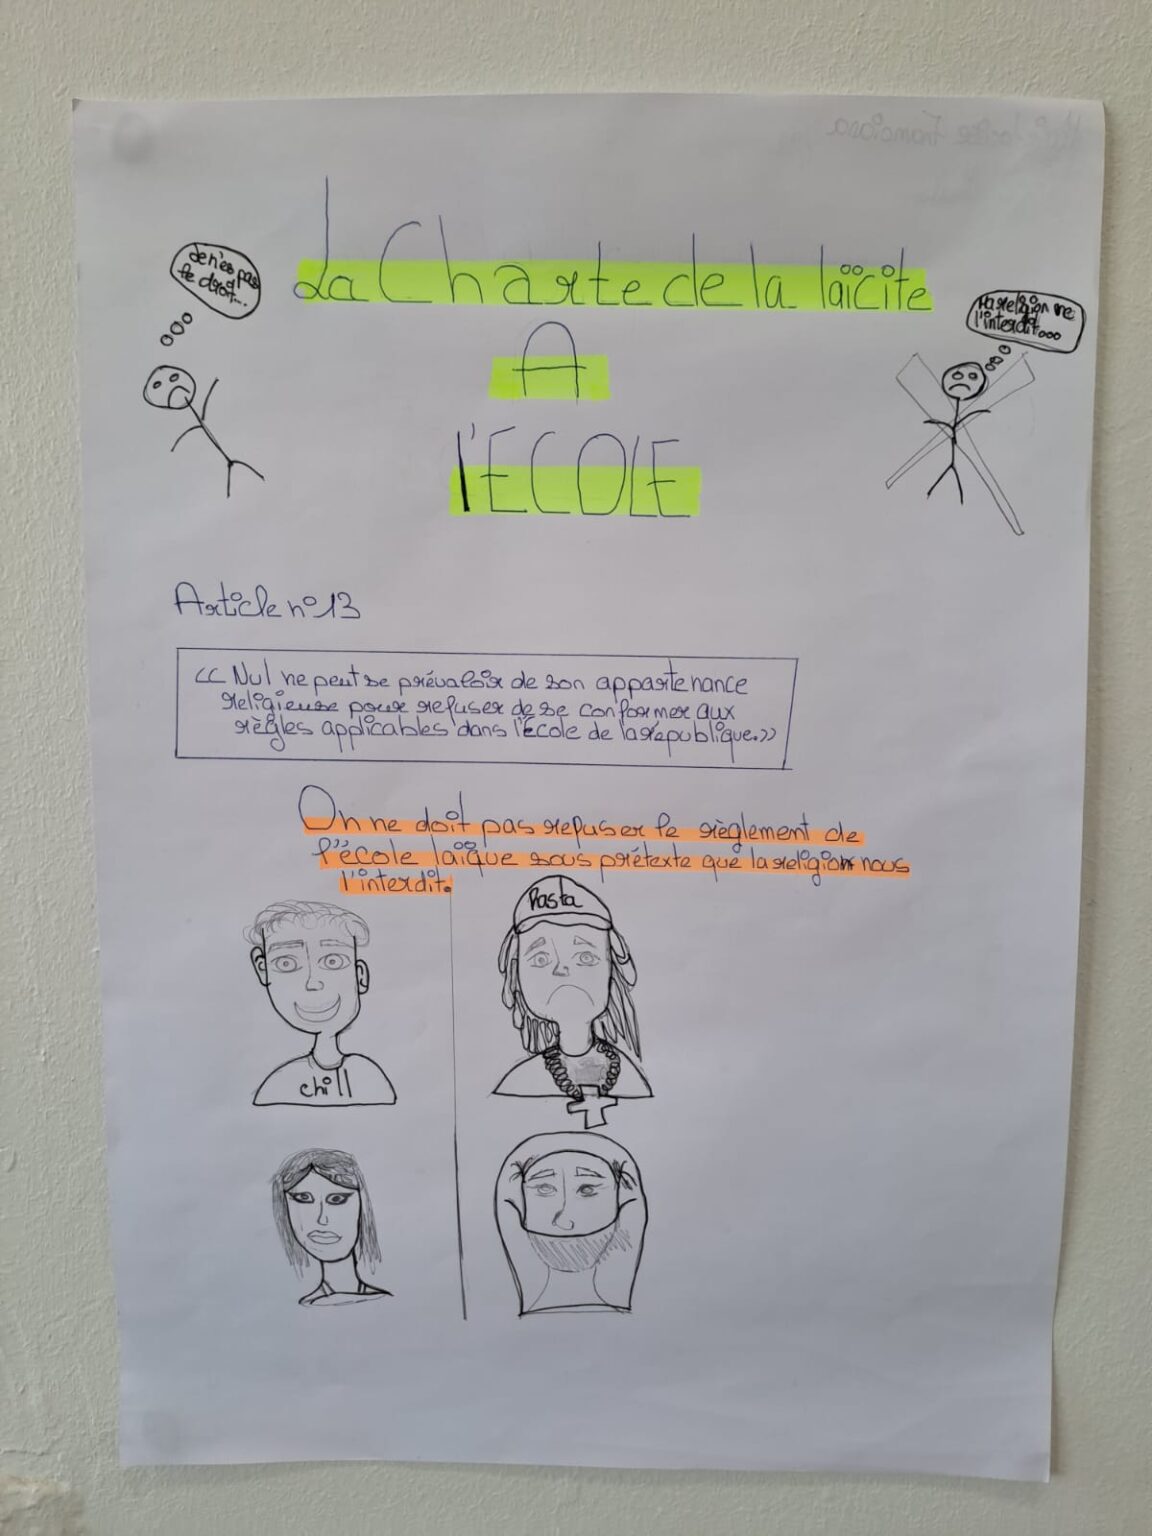 La Charte de la laïcité
A
l'ECOLE
Je n'es pas
le droit...
Ma religion me
l'interdit...
Article n°13
« Nul ne peut se prévaloir de son appartenance
religieuse pour refuser de se conformer aux
règles applicables dans l'école de la république. »
On ne doit pas refuser le règlement de
l'école laïque sous prétexte que la religion nous
l'interdit.
Rasta
chill